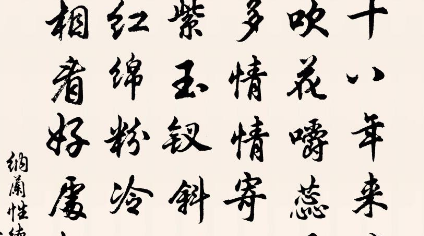 十八年来
吹花嚼蕊
多情情寄
紫玉钗斜
红绵粉冷
相看好處
纳蘭性